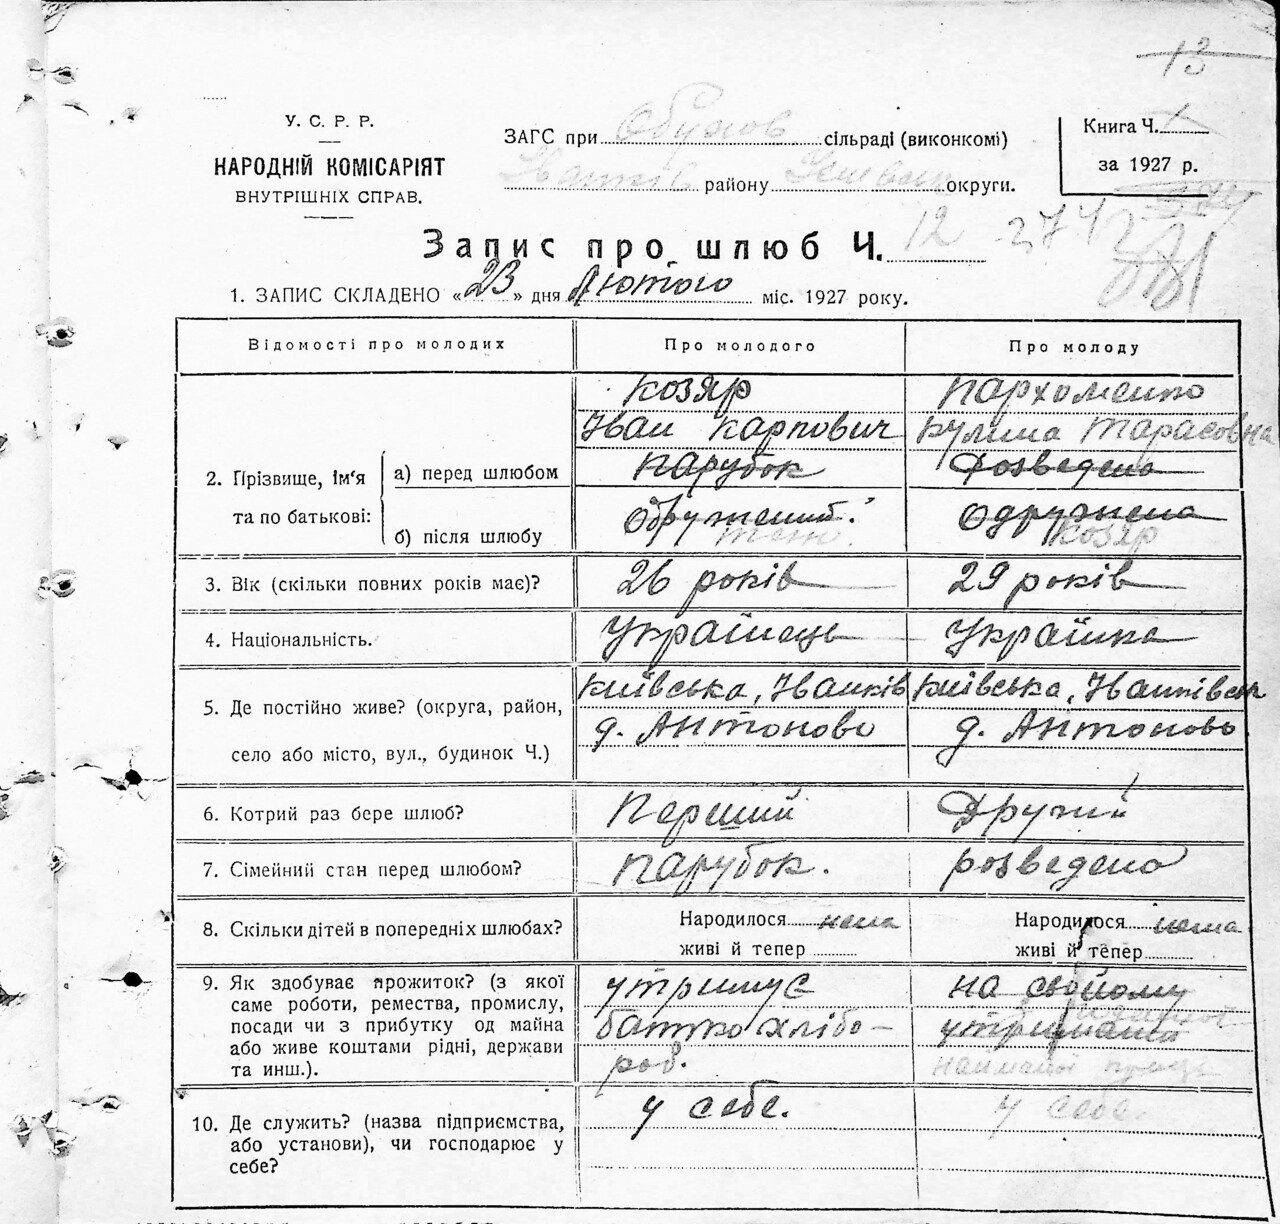 13
У. С. Р. Р.
НАРОДНІЙ КОМІСАРІЯТ
ВНУТРІШНІХ СПРАВ.
ЗАГС при Обухов сільраді (виконкомі)
району округи.
Книга Ч. 1
за 1927 р.
374
Запис про шлюб Ч. 12 274
1. ЗАПИС СКЛАДЕНО «23» дня Лютого міс. 1927 року.
Відомості про молодих Про молодого Про молоду
Козяр Пархоменко
Іван Карпович Кулина Тарасовна
2. Прізвище, ім'я та по батькові:
а) перед шлюбом Парубок Розведена
б) після шлюбу Одружений Одружена
теж Козяр
3. Вік (скільки повних років має)? 26 років 29 років
4. Національність. Українець Українка
5. Де постійно живе? (округа, район, Київська, Іванків Київська, Іванківськ
село або місто, вул., будинок Ч.) д. Антоново д. Антоново
6. Котрий раз бере шлюб? Перший Другий
7. Сімейний стан перед шлюбом? Парубок. розведена
8. Скільки дітей в попередніх шлюбах? Народилося нема Народилося нема
живі й тепер живі й тепер
9. Як здобуває прожиток? (з якої утримує на свойому
саме роботи, ремества, промислу,
посади чи з прибутку од майна батько хлібо- утриманні
або живе коштами рідні, держави роб. найманої праці
та инш.).
10. Де служить? (назва підприємства, у себе. у себе.
або установи), чи господарює у
себе?